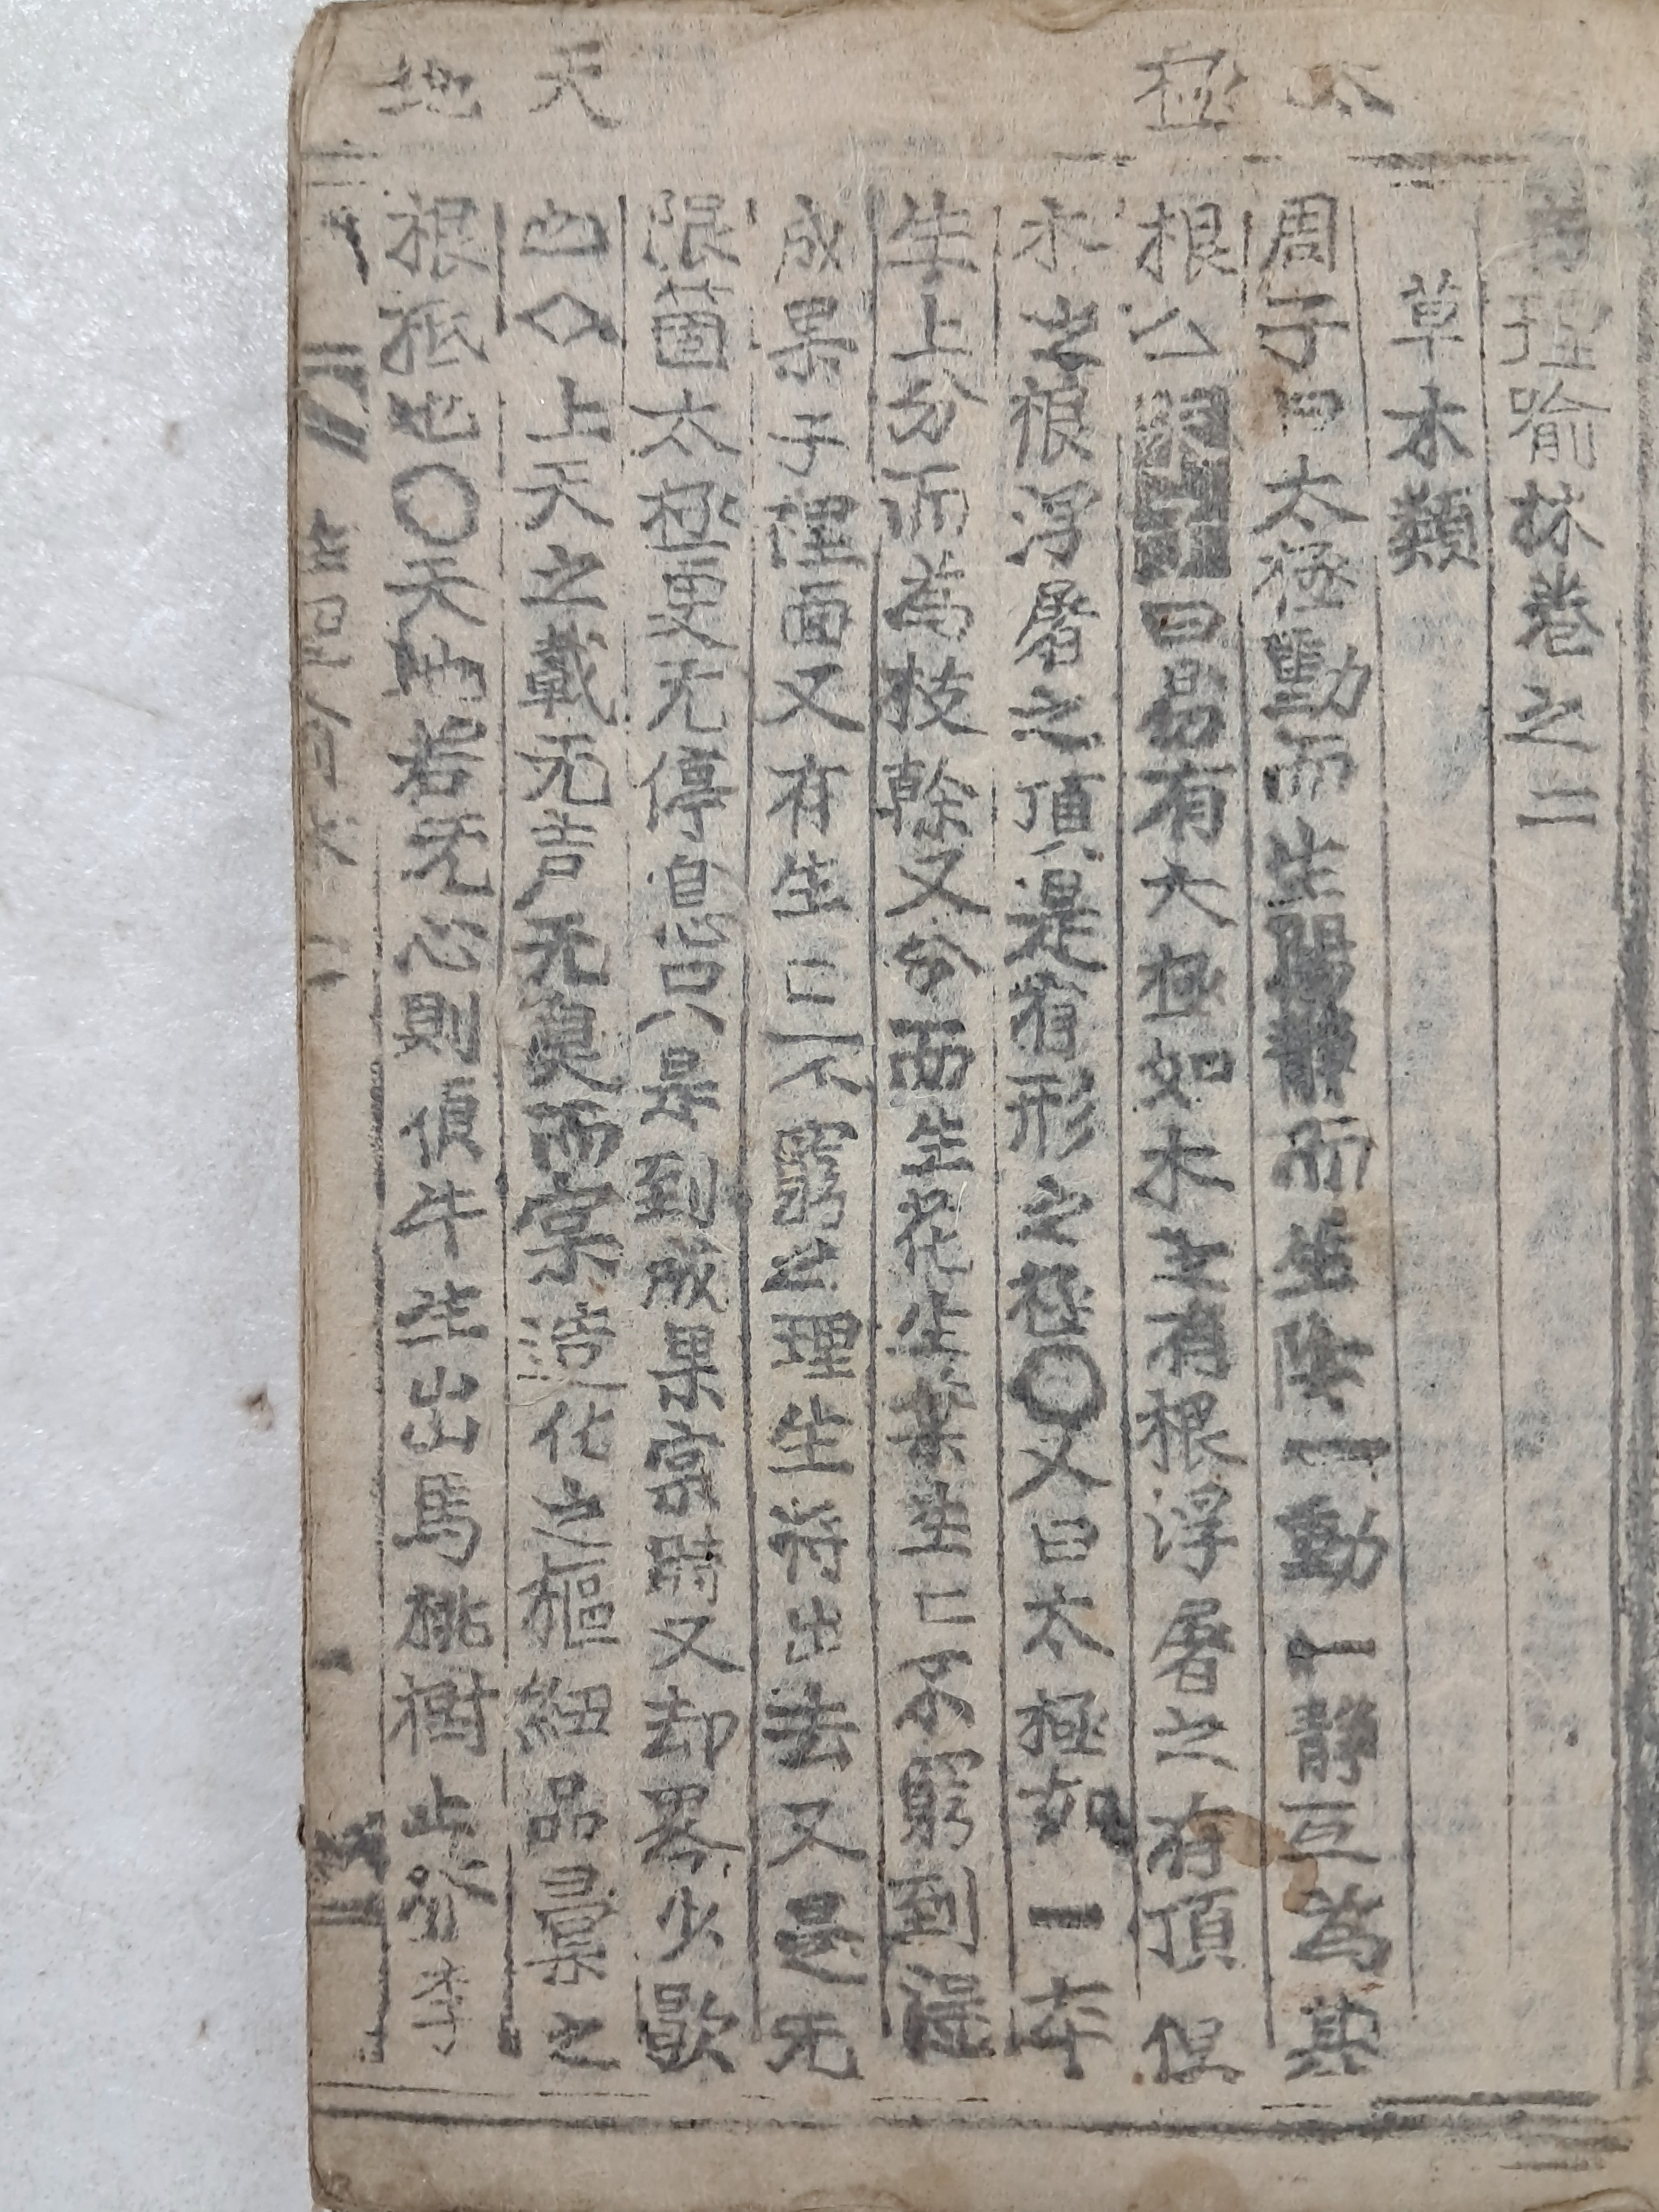 太極
天地
理喻林卷之二
草木類
周子曰太極動而生陽靜而生陰一動一靜互爲其
根厶曰易有大極如木之有根浮屠之有頂但
木之根浮屠之頂是有形之極〇又曰太極如一本
生上分而為枝幹又分而生花生葉生匕不窮到得
成果子裡面又有生匕不窮之理生將出去又是无
限箇太極更无停息只是到成果實時又却畧少歇
也◇上天之載无声无臭而实造化之樞紐品彙之
根柢也〇天地若无心則須牛生出馬桃樹上發李